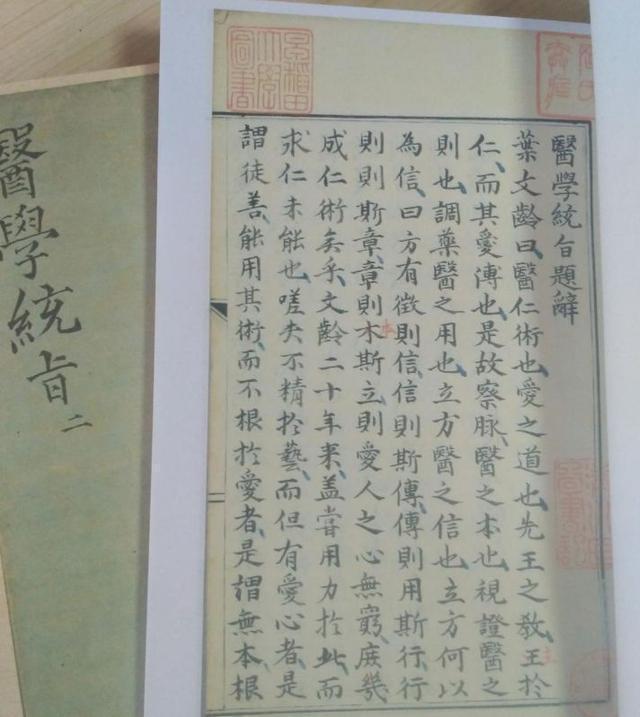 醫學統㫖題辭
葉文齡曰醫仁術也愛之道也先王之教王於
主
仁而其愛溥也是故察脉醫之本也視證醫之
則也調藥醫之用也立方醫之信也立方何以
為信曰方有徵則信信則斯傳傳則用斯行行
則則斯章章則木斯立則愛人之心無窮庻幾
本
成仁術矣乎文齡二十年来盖嘗用力於此而
求仁未能也嗟夫不精於藝而但有愛心者是
謂徒善能用其術而不根於愛者是謂無本根
醫學統㫖 二